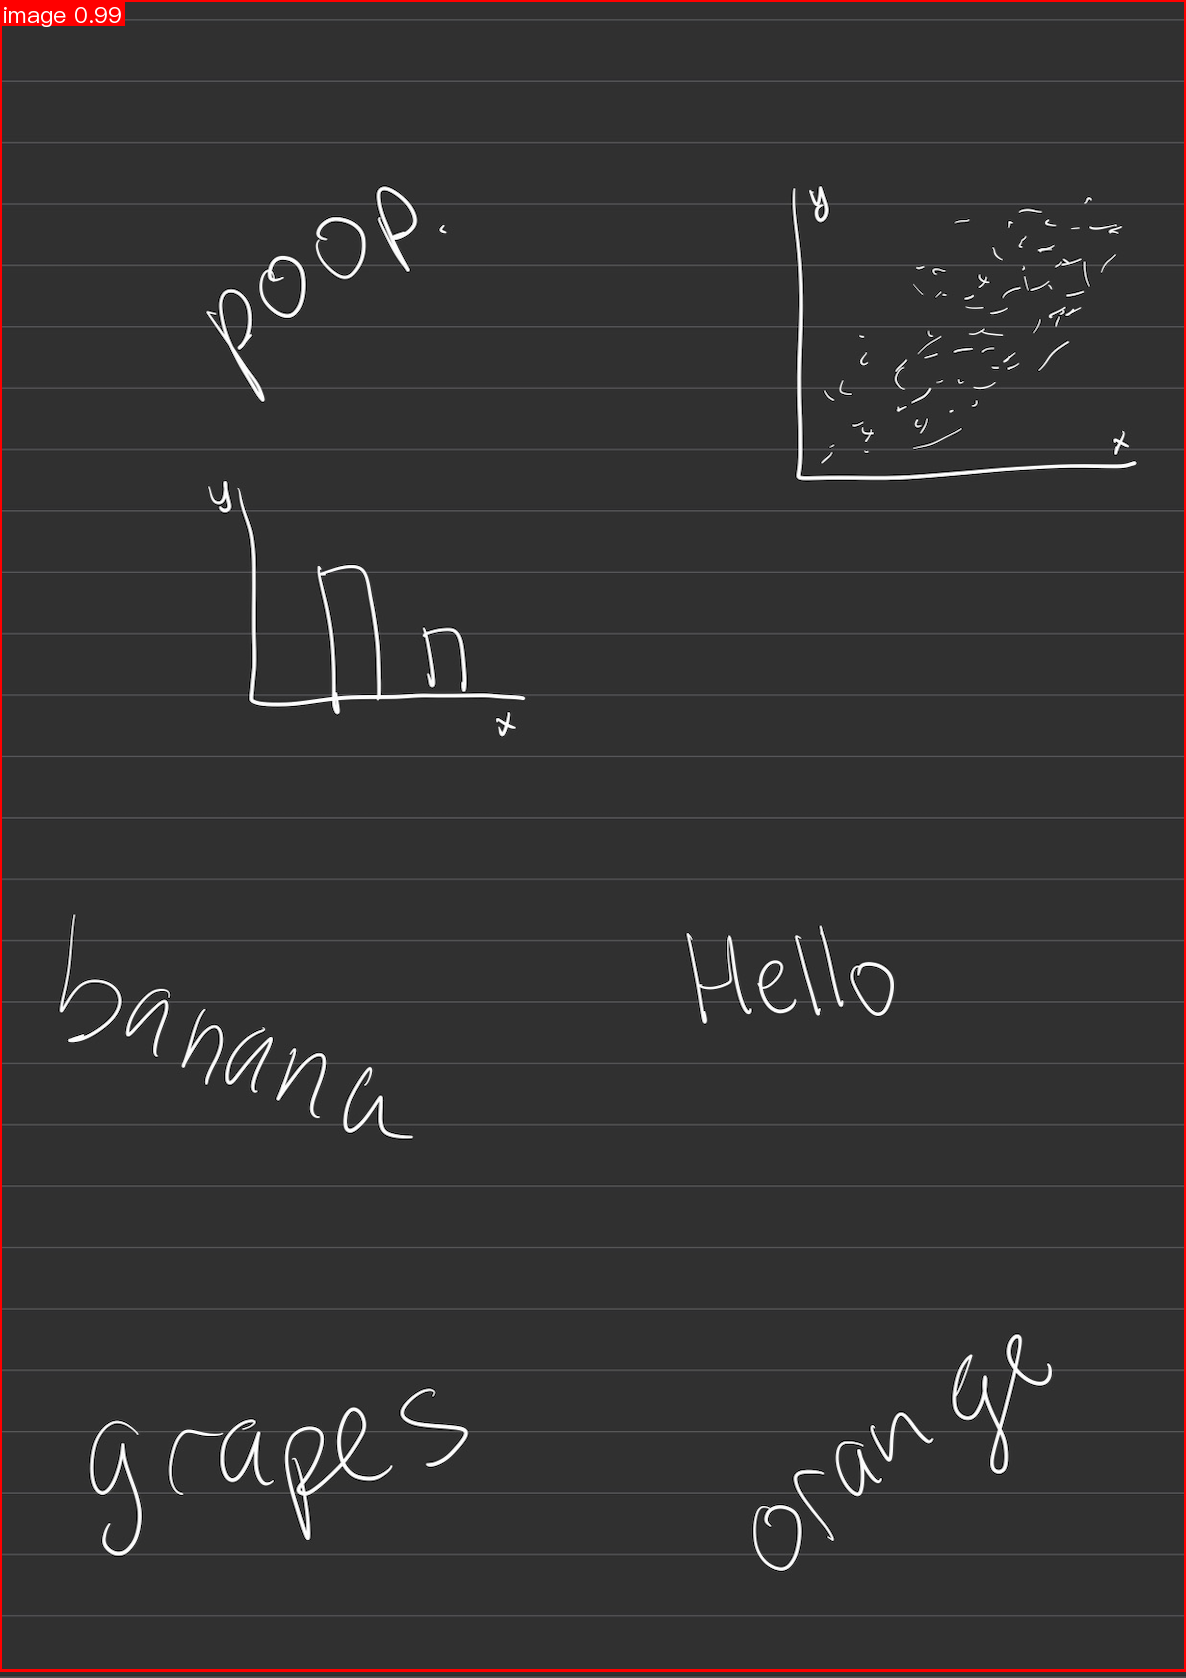 image 0.99
poop.
y
x
y
x
banana
Hello
grapes
orange